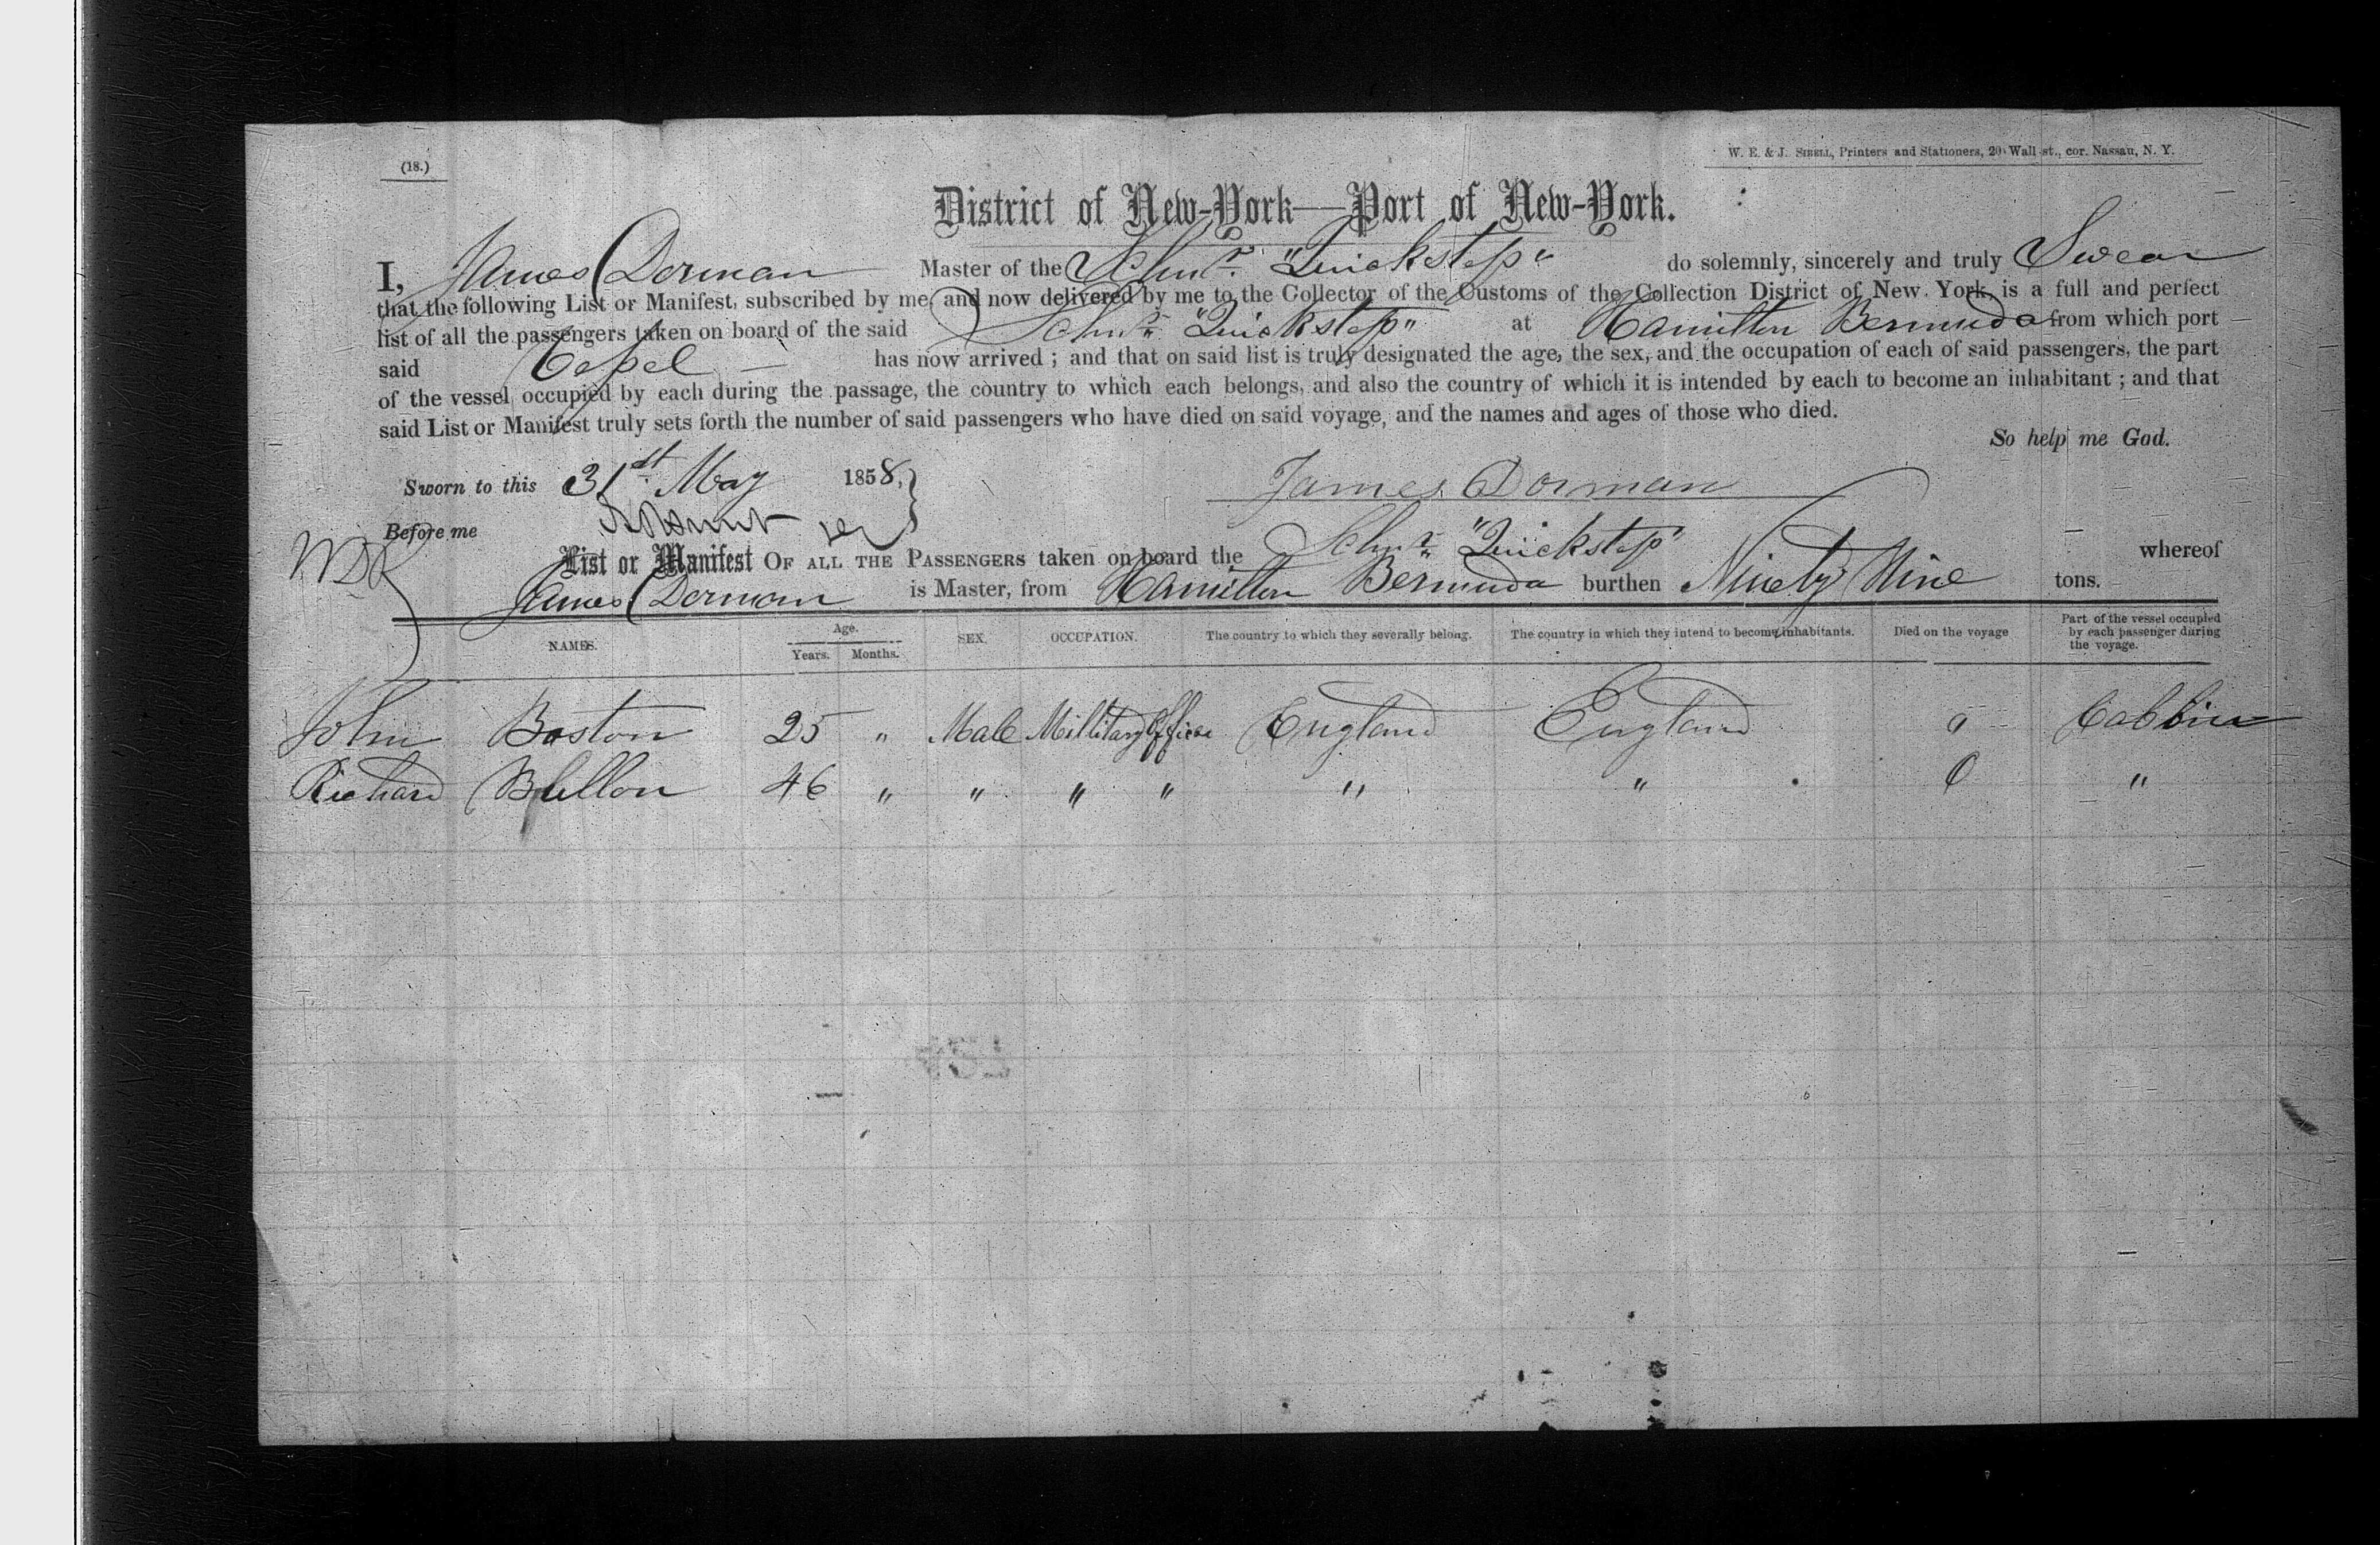 (18.)
W. E. & J. SIBELL, Printers and Stationers, 20 Wall st., cor. Nassau, N. Y.
District of New-York—Port of New-York.
I, James Dorman Master of the Schnr. "Quickstep" do solemnly, sincerely and truly Swear
that the following List or Manifest, subscribed by me, and now delivered by me to the Collector of the Customs of the Collection District of New York, is a full and perfect
list of all the passengers taken on board of the said Schnr. "Quickstep" at Hamilton Bermuda from which port
said has now arrived ; and that on said list is truly designated the age, the sex, and the occupation of each of said passengers, the part
of the vessel occupied by each during the passage, the country to which each belongs, and also the country of which it is intended by each to become an inhabitant ; and that
said List or Manifest truly sets forth the number of said passengers who have died on said voyage, and the names and ages of those who died.
So help me God.
Sworn to this 31st May 1858,
James Dorman
Before me
List or Manifest OF ALL THE PASSENGERS taken on board the Schnr. "Quickstep" whereof
James Dorman is Master, from Hamilton Bermuda burthen Ninety Nine tons.
NAMES. Age. Years. Months. SEX. OCCUPATION. The country to which they severally belong. The country in which they intend to become inhabitants. Died on the voyage Part of the vessel occupied by each passenger during the voyage.
John Boston 25 " Male Millitary Officer England England 0 Cabbin
Richard 46 " " " " " " 0 "